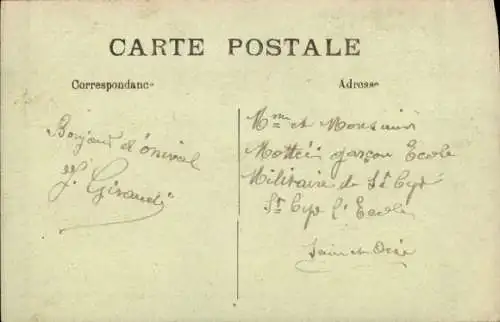 CARTE POSTALE
Correspondance
Adresse
Bonjour d'Onival
J. Giraud
Mme et Monsieur
Mottei garçon Ecole
Militaire de St Cyr
St Cyr l'Ecole
Seine et Oise